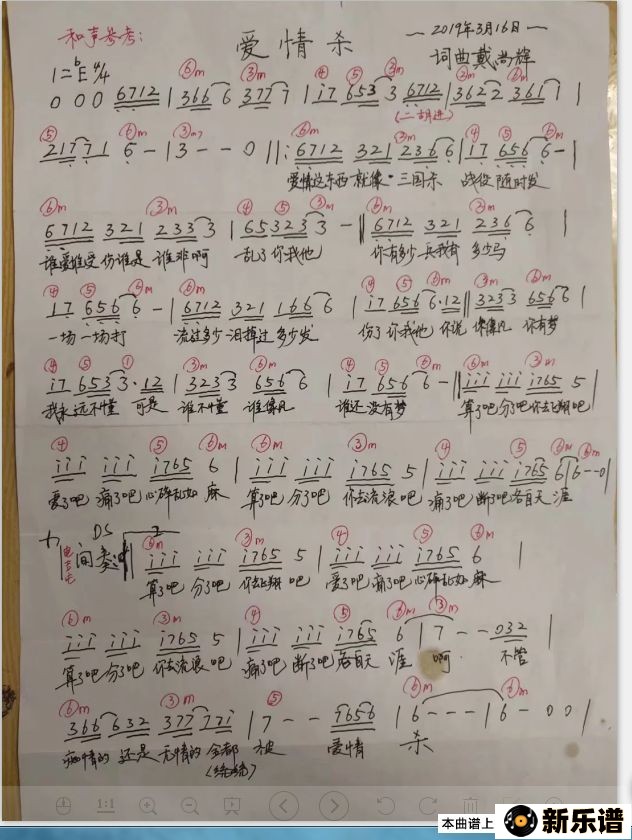 和声参考:
爱情杀
2019年3月16日
词曲戴尚辉
1=♭E 4/4
⑥m ③m ④ ⑤ ③m ③m ⑥m
0 0 0 6712 | 366 6 377 7 | i7 653 3 6712 | 362 2 361 7 |
(二胡进)
⑤ ⑥m ③m7 ⑥m ③m ④ ⑤ ⑥m
21771 6 - | 3 - - 0 ||: 6712 321 236 6 | 17 656 6 - |
爱情这东西 就像 三国杀 战役 随时发
⑥m ③m ④ ⑤ ③m ⑥m
6712 321 233 3 | 65 323 3 - | 6712 321 236 6 |
谁爱谁受 伤谁是 谁非啊 乱了你我他 你有多少 兵我有 多少马
④ ⑤ ⑥m ⑥m ④ ⑤ ⑥m ③m ⑥m
17 656 6 - | 6712 321 166 6 | i7 656 6·12 | 323 3 656 6 |
一场 一场打 流过多少 泪掉过 多少发 伤了 你我他 你说 你有梦
④ ⑤ ① ③m ⑥m ④ ⑤ ⑥m ⑥m ③m
i7 653 3·12 | 323 3 656 6 | i7 656 6 - || iii iii i765 5 |
我永 远不懂 可是 谁不懂 谁像风 谁还 没有梦 算了吧 分了吧 你去飞翔吧
④ ⑤ ⑥m ⑥m ③m ④ ⑤ ⑥m ⑥m
iii iii i765 6 | iii iii i765 5 | iii iii i765 6 | 6 - - 0 |
爱了吧 痛了吧 心碎乱如 麻 算了吧 分了吧 你去流浪 吧 痛了吧 断了吧 各自天 涯
DS 2
间奏 ⑥m ③m ④ ⑤ ⑥m
iii iii i765 5 | iii iii i765 6 |
算了吧 分了吧 你去飞翔 吧 爱了吧 痛了吧 心碎乱如 麻
⑥m ③m ④ ⑤ ⑥m ③m
iii iii i765 5 | iii iii i765 6 | 7 - - 032 |
算了吧 分了吧 你去流浪 吧 痛了吧 断了吧 各自天 涯 啊 不管
⑥m ③m ⑤ ⑥m ⑥m
366 632 377 77i | 7 - - 7656 | 6 - - - | 6 - 0 0 |
痴情的 还是 无情的 全都 被 爱情 杀
(统统)
1:1
本曲谱上 新乐谱